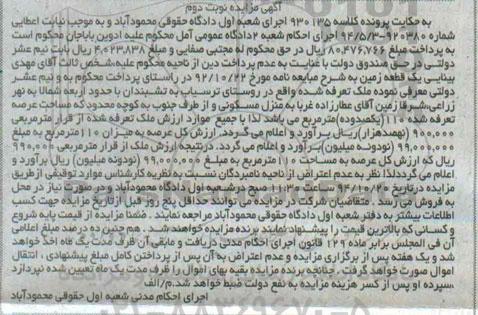 آگهی مزایده نوبت دوم
به حکایت پرونده کلاسه ۹۳۰۱۳۵ اجرای شعبه اول دادگاه حقوقی محمودآباد و به موجب نیابت اعطایی
شماره ۹۲۰۳۸۰-۹۴/۵/۳ اجرای احکام شعبه ۲دادگاه عمومی آمل محکوم علیه ادوین باباجان محکوم است
به پرداخت مبلغ ۸۰,۴۷۶,۷۶۶ ریال در حق محکوم له مجتبی صفایی و مبلغ ۴,۰۲۳,۸۳۸ ریال بابت نیم عشر
دولتی در حق صندوق دولت با عنایت به عدم پرداخت دین از ناحیه محکوم علیه،شخص ثالث آقای مهدی
بینایی یک قطعه زمین به شرح مبایعه نامه مورخ ۹۲/۱۰/۲۲ در راستای پرداخت محکوم به و نیم عشر
دولتی معرفی نموده ملک تعرفه شده واقع در روستای ترسیاب به تشبندان با حدود اربعه شمالا به نهر
زراعی،شرقا زمین آقای عطارزاده غربا به منزل مسکونی و از طرف جنوب به کوچه محدود که مساحت عرصه
تعرفه شده ۱۱۰(یکصدوده)مترمربع می باشد لذا با جمیع موارد ارزش ملک تعرفه شده از قرار مترمربعی
۹۰۰,۰۰۰ (نهصدهزار)ریال برآورد و اعلام می گردد. ارزش کل عرصه به میزان ۱۱۰مترمربع به مبلغ
۹۹,۰۰۰,۰۰۰ (نودونه میلیون)برآورد و اعلام می گردد. درنتیجه ارزش ملک از قرار مترمربعی ۹۹۰,۰۰۰
ریال که ارزش کل عرصه به مساحت ۱۱۰مترمربع به مبلغ ۹۹,۰۰۰,۰۰۰ (نودونه میلیون) ریال برآورد و
اعلام می گرددلذا نظر به عدم اعتراض از ناحیه نامبردگان نسبت به نظریه کارشناس موارد توقیفی از طریق
مزایده درتاریخ ۹۴/۱۰/۲۰ ساعت ۱۱:۳۰ صبح درشعبه اول دادگاه محمودآباد و در صورت نیاز در محل
به فروش می رسد . متقاضیان شرکت در مزایده می توانند حداقل پنج روز قبل ازتاریخ مزایده جهت کسب
اطلاعات بیشتر به دفتر شعبه اول دادگاه حقوقی محمودآباد مراجعه نمایند . ضمنا مزایده از قیمت پایه شروع
و کسانی که بالاترین قیمت را پیشنهاد نمایند برنده مزایده خواهند شد . هم چنین ده درصد مبلغ اعلامی
آن فی المجلس برابر ماده ۱۲۹ قانون اجرای احکام مدنی دریافت و مابقی آن ظرف مدت یک ماه اخذ خواهد
شد و یک هفته پس از برگزاری مزایده و عدم اعتراض به آن پس از پرداختن کامل مبلغ پیشنهادی ، انتقال
اموال صورت خواهد گرفت . چنانچه برنده مزایده بقیه بهای اموال را ظرف مدت یک ماه تعیین شده نپردازد
،سپرده او پس از کسر هزینه مزایده به نفع دولت ضبط خواهد شد.م/الف
اجرای احکام مدنی شعبه اول حقوقی محمودآباد